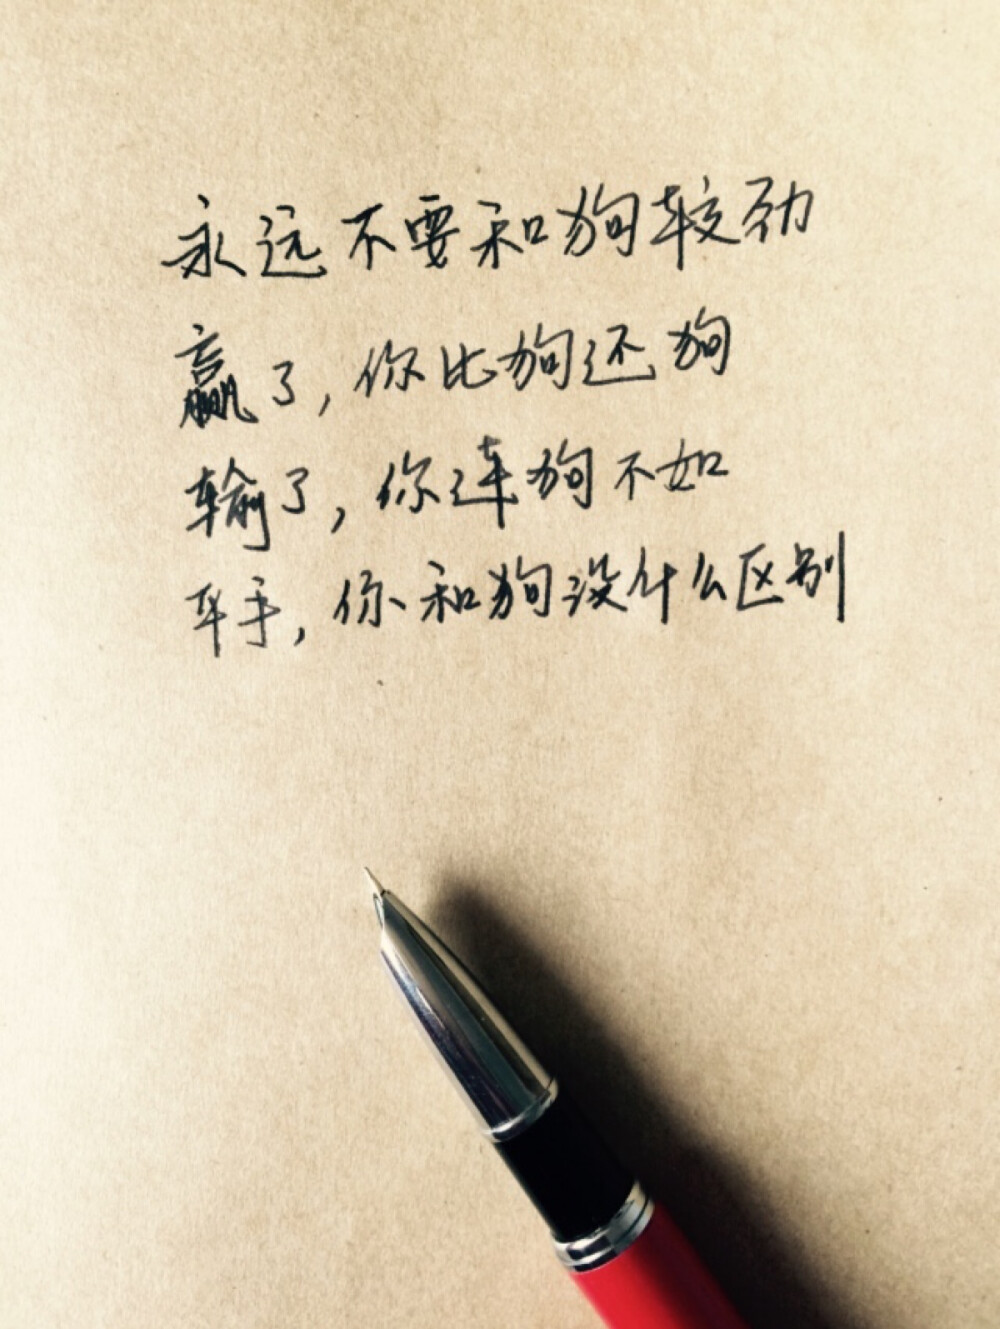 永远不要和狗较劲
赢了，你比狗还狗
输了，你连狗不如
平手，你和狗没什么区别